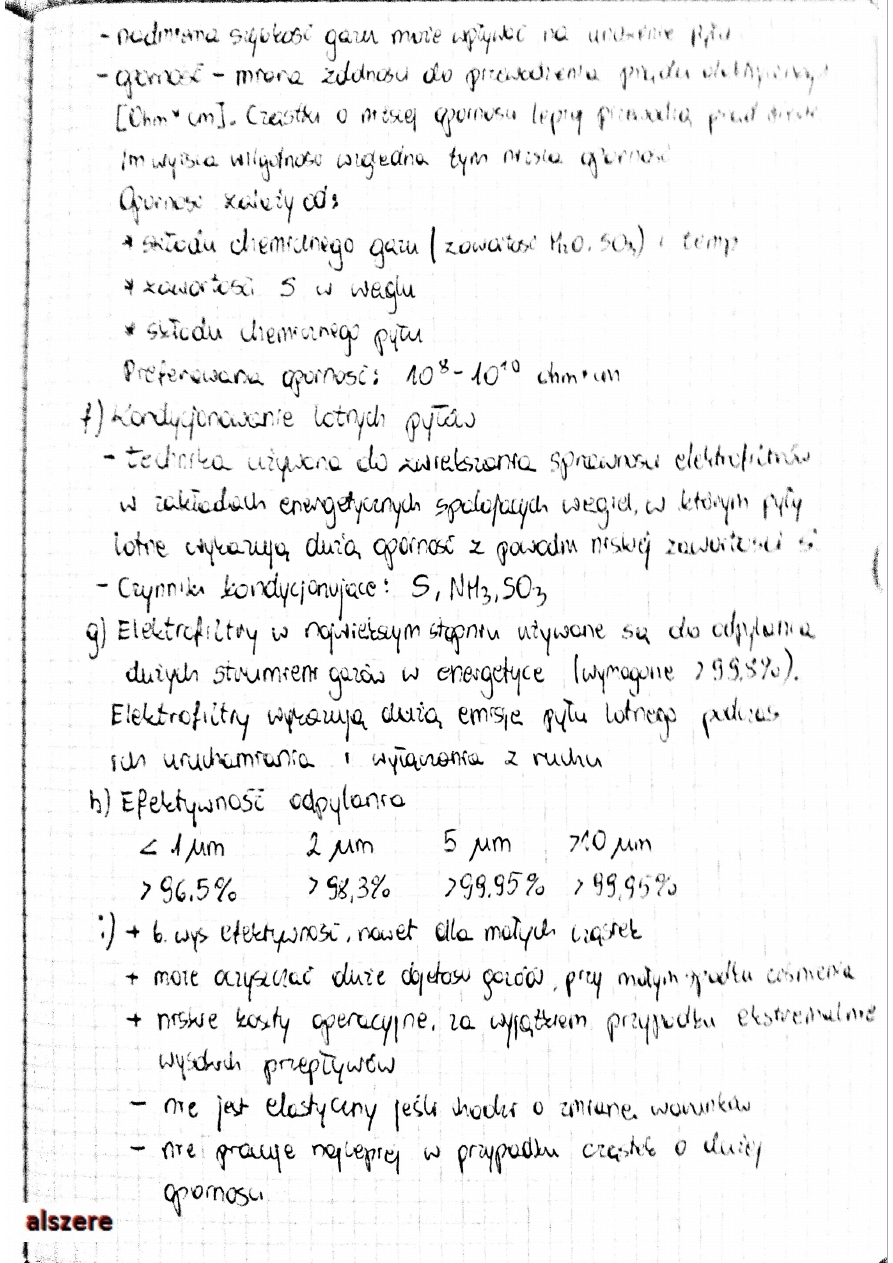 - nadmierna szybkość gazu może wpływać na unoszenie pyłu
- oporność - miara zdolności do przewodzenia prądu elektrycznego
[Ohm * cm]. Cząstki o niższej oporności lepiej przewodzą prąd
Im wyższa wilgotność względna tym niższa oporność
Oporność zależy od:
* składu chemicznego gazu (zawartość H2O, SO3) i temp
* zawartości S w węglu
* składu chemicznego pyłu
Preferowana oporność: 10⁸ - 10¹⁰ ohm * cm
f) Kondycjonowanie lotnych pyłów
- technika używana do zwiększania sprawności elektrofiltrów
w zakładach energetycznych spalających węgiel, w którym pyły
lotne wykazują dużą oporność z powodu niskiej zawartości S
- Czynniki kondycjonujące: S, NH₃, SO₃
g) Elektrofiltry w największym stopniu używane są do odpylania
dużych strumieni gazów w energetyce (wymagane > 99,8%).
Elektrofiltry wykazują dużą emisję pyłu lotnego podczas
ich uruchamiania i wyłączania z ruchu
h) Efektywność odpylania
< 1 μm 2 μm 5 μm >10 μm
> 96.5% > 98,3% >99.95% > 99,95%
i) + b. wys efektywność, nawet dla małych cząstek
+ może oczyszczać duże objętości gazów, przy małym spadku ciśnienia
+ niskie koszty operacyjne, za wyjątkiem przypadku ekstremalnie
wysokich przepływów
- nie jest elastyczny jeśli chodzi o zmianę warunków
- nie pracuje najlepiej w przypadku cząstek o dużej
oporności
alszere